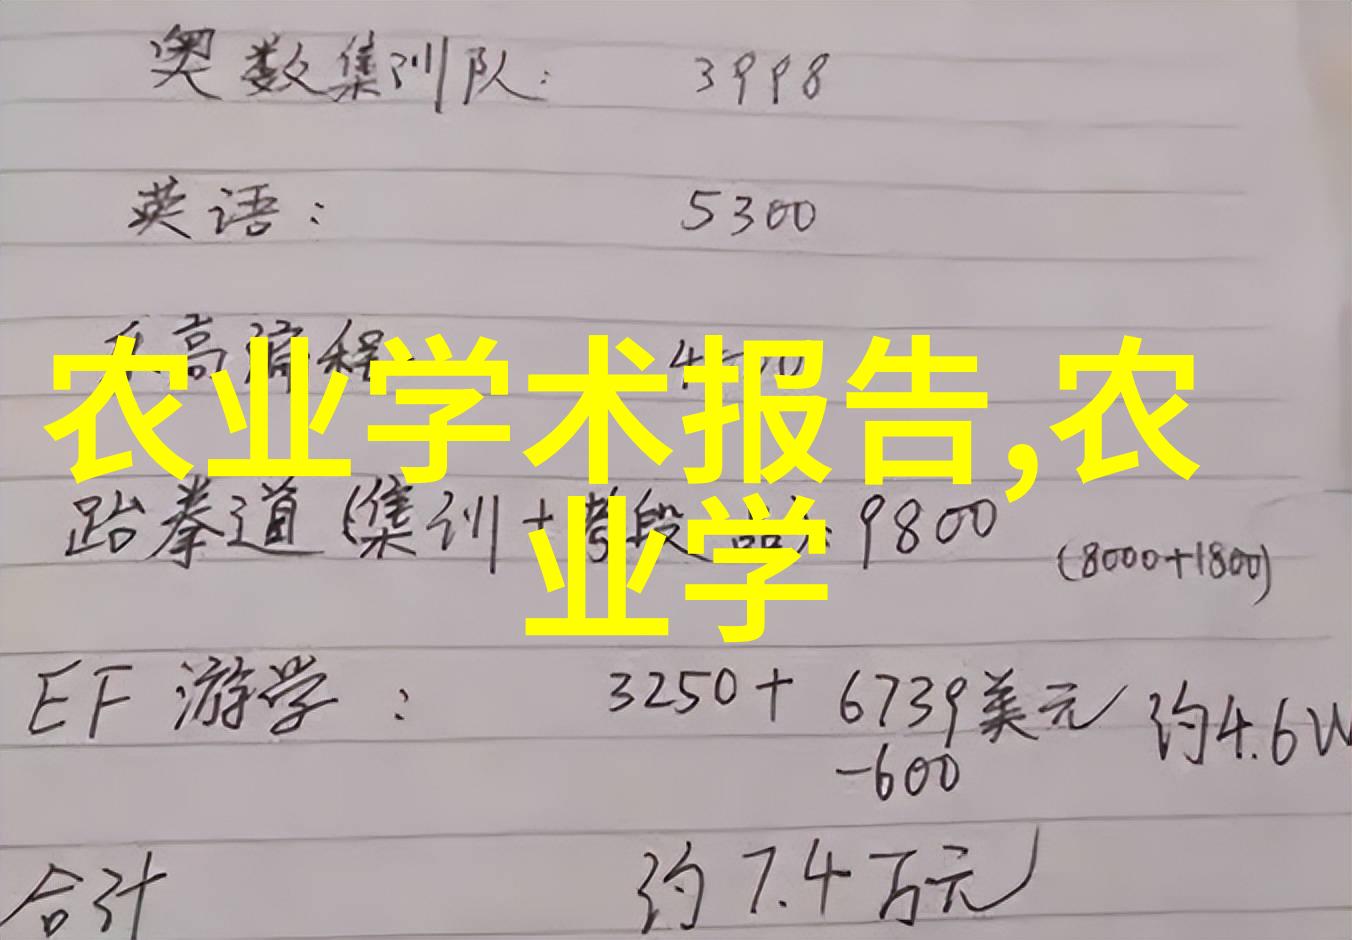 奥数集训队: 3998
英语: 5300
高 程
农业学术报告,农
业学
跆拳道(集训+考段 9800
(8000+1800)
EF 游学: 3250+ 6739美元 约4.6W
-600
合计 约7.4万元